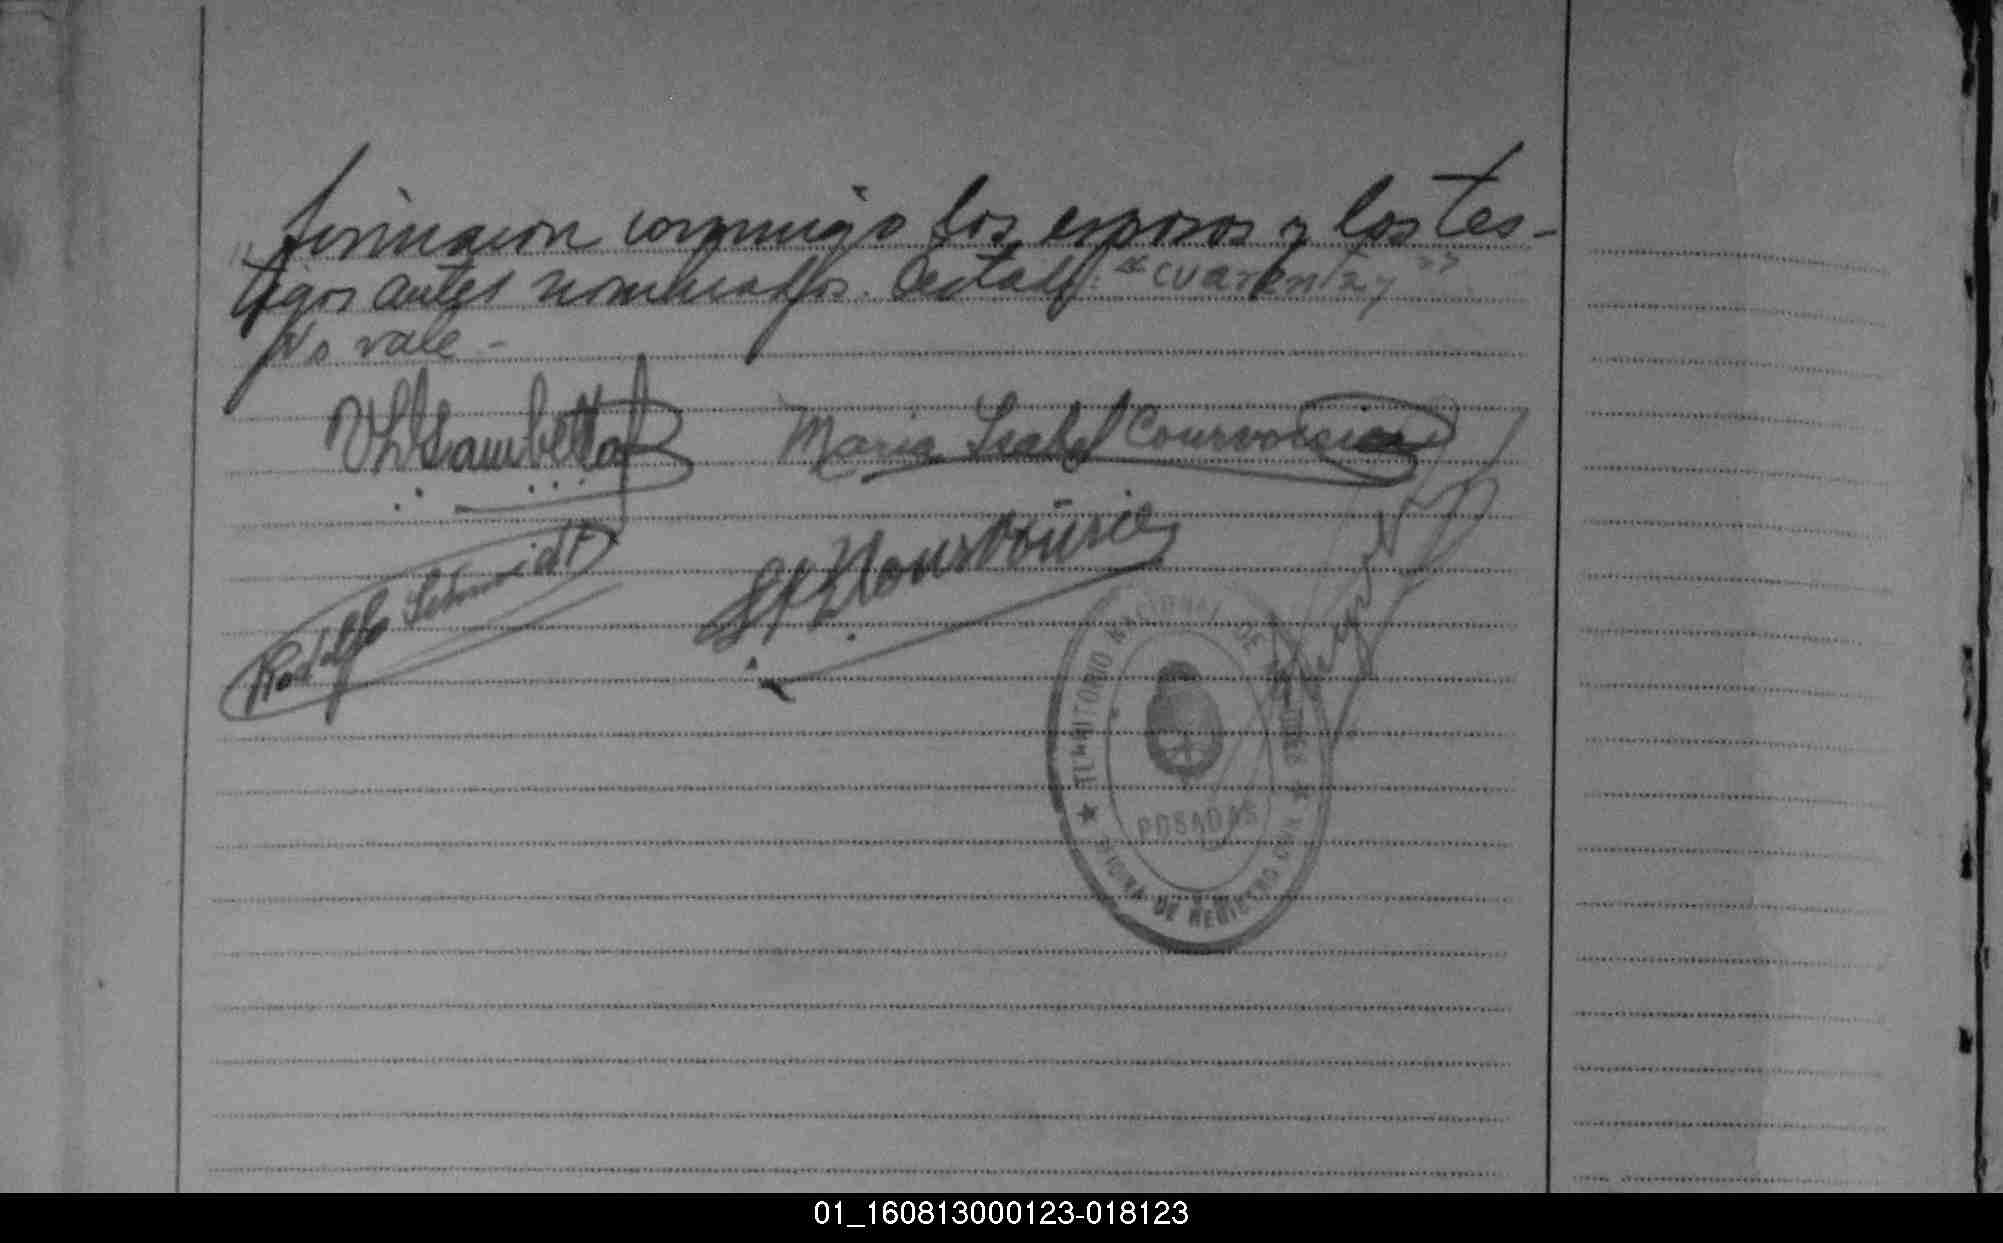 firmaron conmigo los esposos y los tes-
tigos antes nombrados. Testado: "cuarenta y"
No vale-
VHGambetta
Maria Isabel Courvoisier
Rodolfo Schmidt
Courvoisier
TERRITORIO NACIONAL DE MISIONES
POSADAS
OFICINA DE REGISTRO CIVIL
01_160813000123-018123